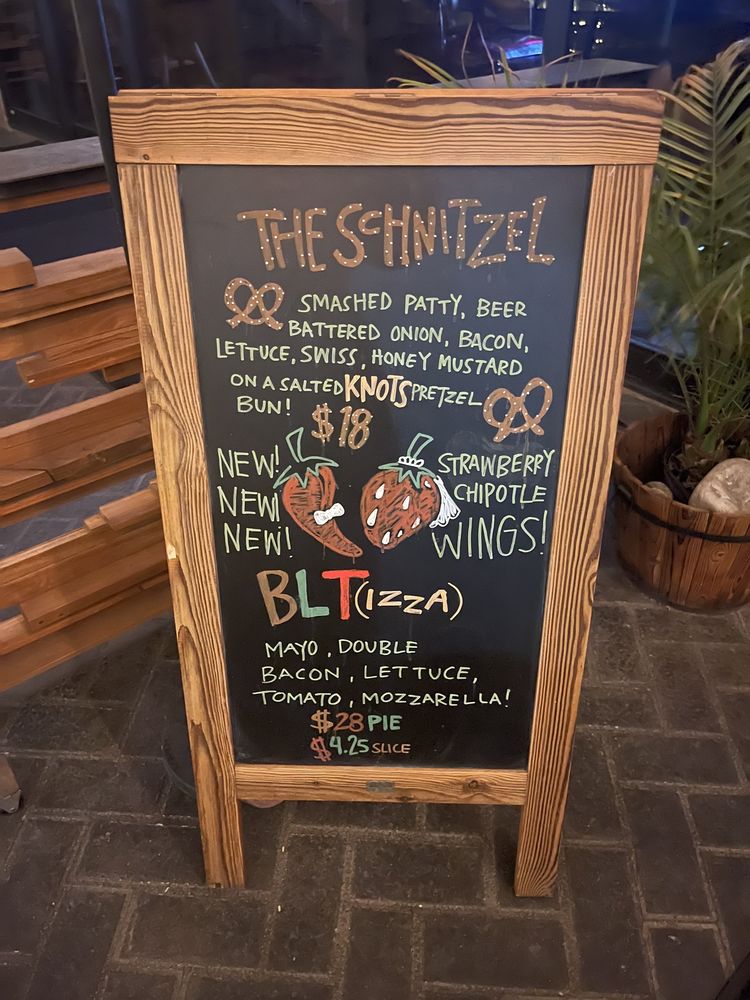 THE SCHNITZEL
SMASHED PATTY, BEER
BATTERED ONION, BACON,
LETTUCE, SWISS, HONEY MUSTARD
ON A SALTED KNOTS PRETZEL
BUN!
$18
NEW!
NEW!
NEW!
STRAWBERRY
CHIPOTLE
WINGS!
BLT(IZZA)
MAYO, DOUBLE
BACON, LETTUCE,
TOMATO, MOZZARELLA!
$28 PIE
$4.25 SLICE